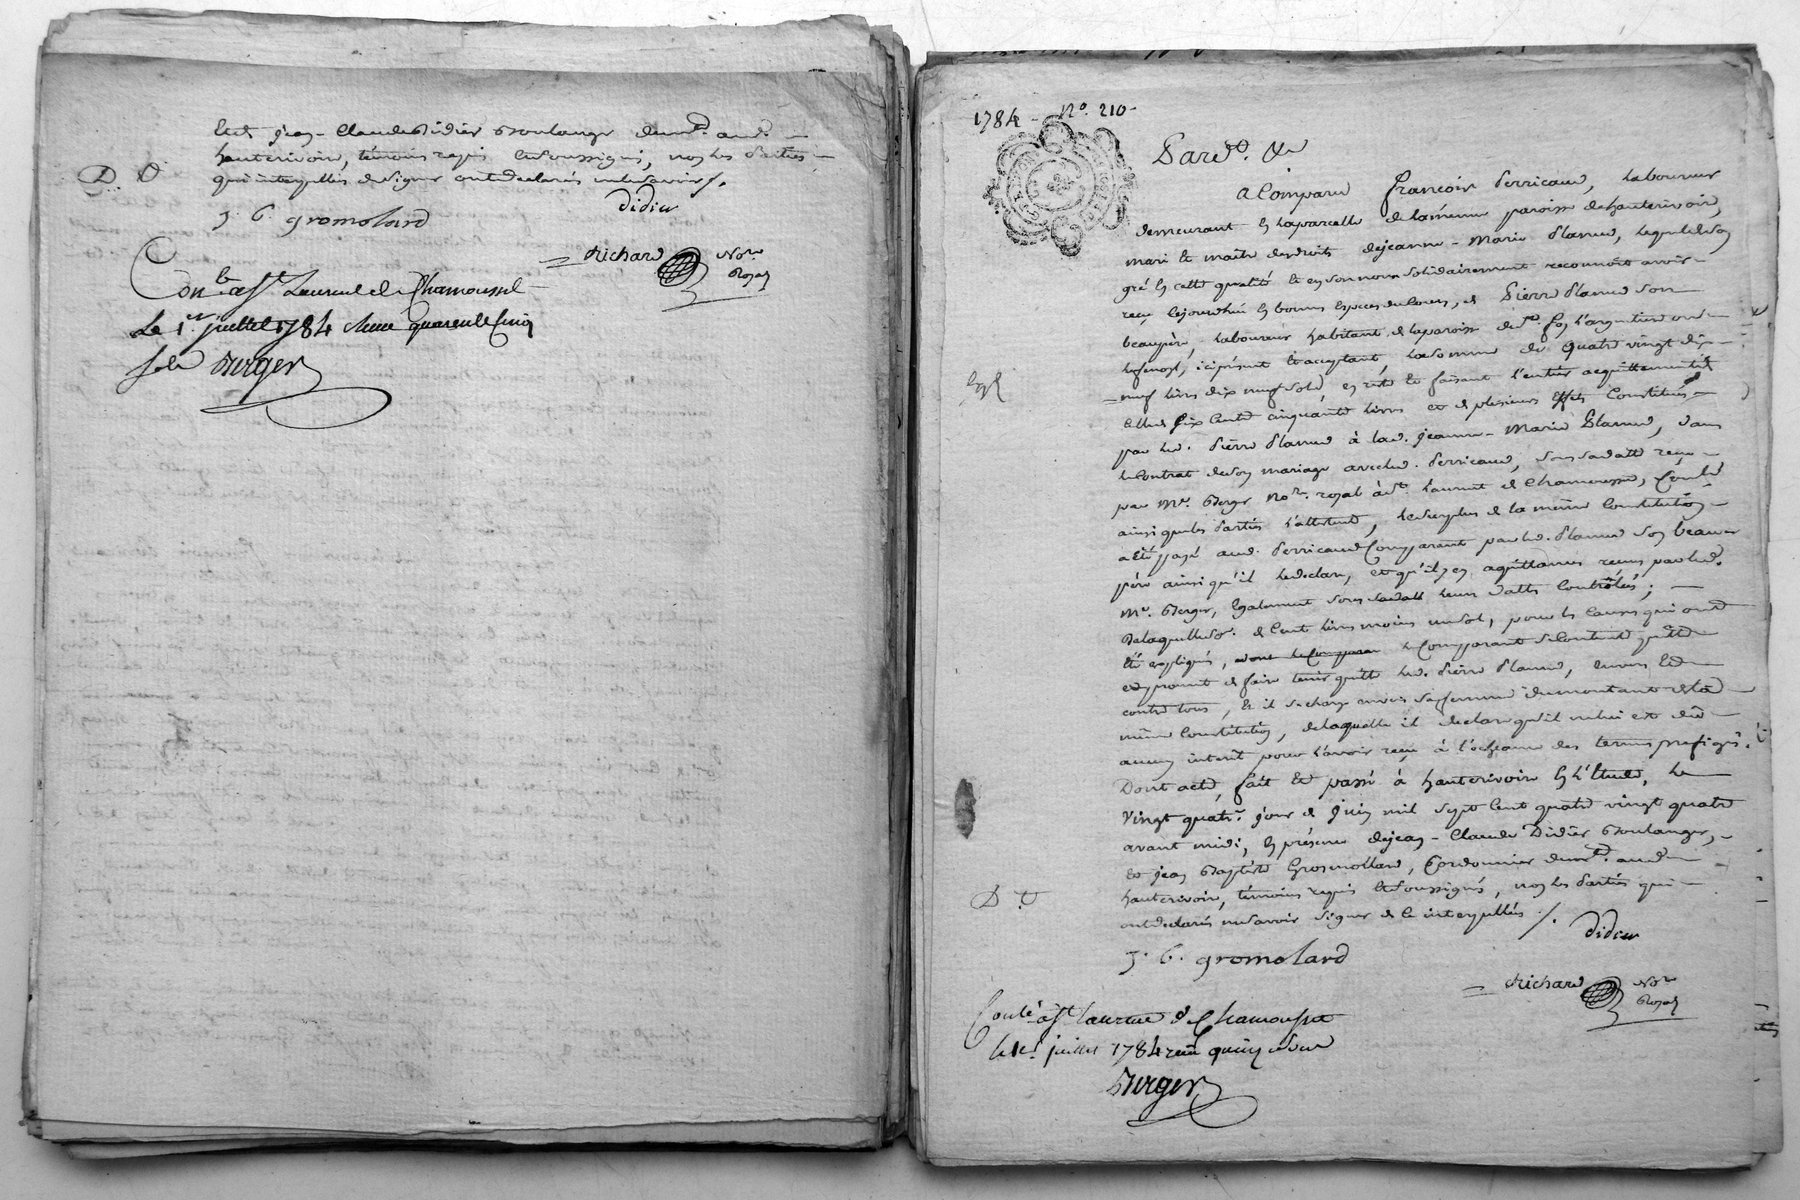 et Jean-Claude Didier Boulanger dem.t aud.
hauterivoire, témoins requis et soussignés, non les Parties
qui interpellées de signer ont declarés ne le savoir /.
D D
didier
J. b. gromolard
Richard No.re Royal
Con.lé a S.t Laurent de Chamousset
Le 1.er juillet 1784 quarente cinq
sols Berger
1784 - N.o 210
Pard.t &
a Comparu françois Perricaud, Laboureur
demeurant en la parcelle de la même paroisse de hauterivoire,
mari et maître des droits de jeanne-Marie Planud, lequel de son
gré en cette qualité et en son nom solidairement reconnoit avoir
reçu cejourd'hui en bonnes especes de cours, de Pierre Planud son
beaupère, Laboureur habitant de la paroisse de S.t
ici présent et acceptant, la somme de quatre vingt dix
neuf livres dix neuf sols, en reste et faisant l'entier acquittement
de six cents cinquante livres et de plusieurs effets Constitués
par led. Pierre Planud à lad. jeanne-Marie Planud, dans
le Contrat de son mariage avec led. Perricaud, sous sa datte reçu
par M.e Berger No.re royal à S.t Laurent de Chamousset, Conlé
ainsi que les Parties l'attestent, le surplus de la même Constitution
a été payé aud. Perricaud Comparant par led. Planud son beau
père ainsi qu'il le declare, et qu'il y en a quittances reçues par led.
M.e Berger, Egalement sous leurs dattes Controlées;
De laquelle so.e de Cent livres moins un sol, pour les causes qui ont
été expliquées, le Comparant se Contente quitte
et promet de faire tenir quitte led. Pierre Planud, envers et
contre tous, et il se charge envers sa femme du montant de la
même Constitution, de laquelle il declare qu'il ne lui est dû
aucun interêt pour l'avoir reçu à l'echeance des termes prefigés.
Dont acte, fait et passé à hauterivoire en l'Etude, le
vingt quatr.e jour de juin mil sept cent quatre vingt quatre
avant midi, en présence de jean-Claude Didier Boulanger,
et jean Baptiste Grosmollard, Cordonnier dem.t aud.
hauterivoire, témoins requis et soussignés, non les Parties qui
ont declarés ne savoir signer de ce interpellées /.
D D
didier
J. b. gromolard
Richard No.re Royal
Conlé a S.t Laurent de Chamousset
le 1.er juillet 1784 reçu quinze sols
Berger